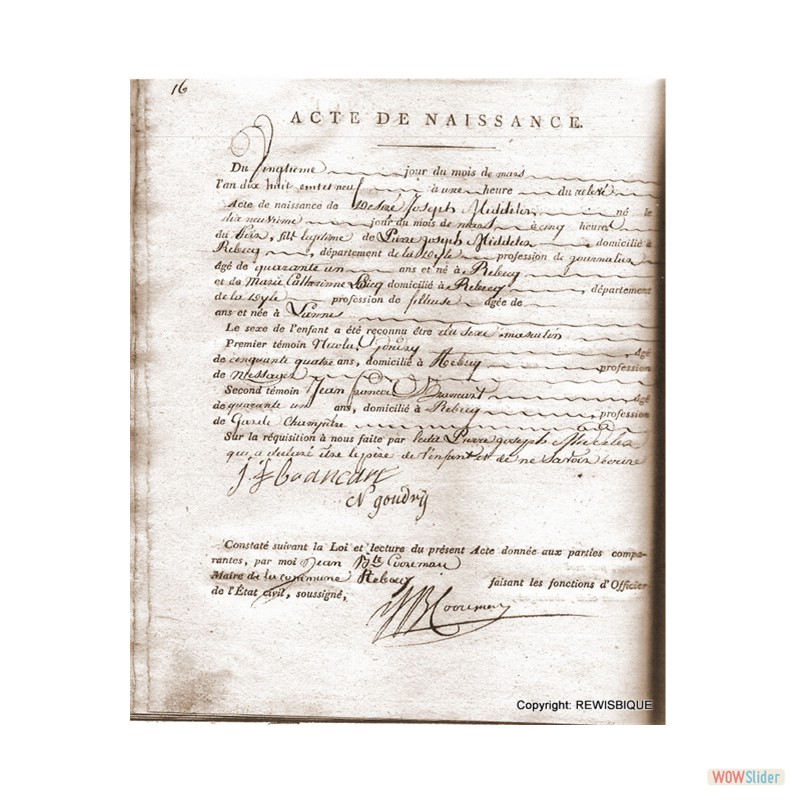 16
ACTE DE NAISSANCE.
Du Vingtieme jour du mois de mars
l'an dix huit cent et neuf à une heure du
Acte de naissance de Desiré Joseph Middeler né le
dix neuvieme jour du mois de mars à cinq heures
du soir, fils legitime de Pierre joseph Middeler, domicilié à
Rebecq, département de la Dyle profession de journalier
âgé de quarante un ans et né à Rebecq
et de Marie Catharinne domicilié à Rebecq, département
de la Dyle profession de fileuse âgée de
ans et née à
Le sexe de l'enfant a été reconnu être du sexe masculin
Premier témoin Nicolas Goudry, âgé
de cinquante quatre ans, domicilié à Rebecq profession
de Messager
Second témoin Jean françois âgé
de quarante un ans, domicilié à Rebecq, profession
de Garde Champêtre
Sur la réquisition à nous faite par ledit Pierre joseph
qui a declaré être le père de l'enfant et de ne savoir ecrire
N goudry
Constaté suivant la Loi et lecture du présent Acte donnée aux parties compa-
rantes, par moi Jean Bte Cooreman
Maire de la commune Rebecq faisant les fonctions d'Officier
de l'État civil, soussigné,
JB Cooreman
Copyright: REWISBIQUE
WOWSlider